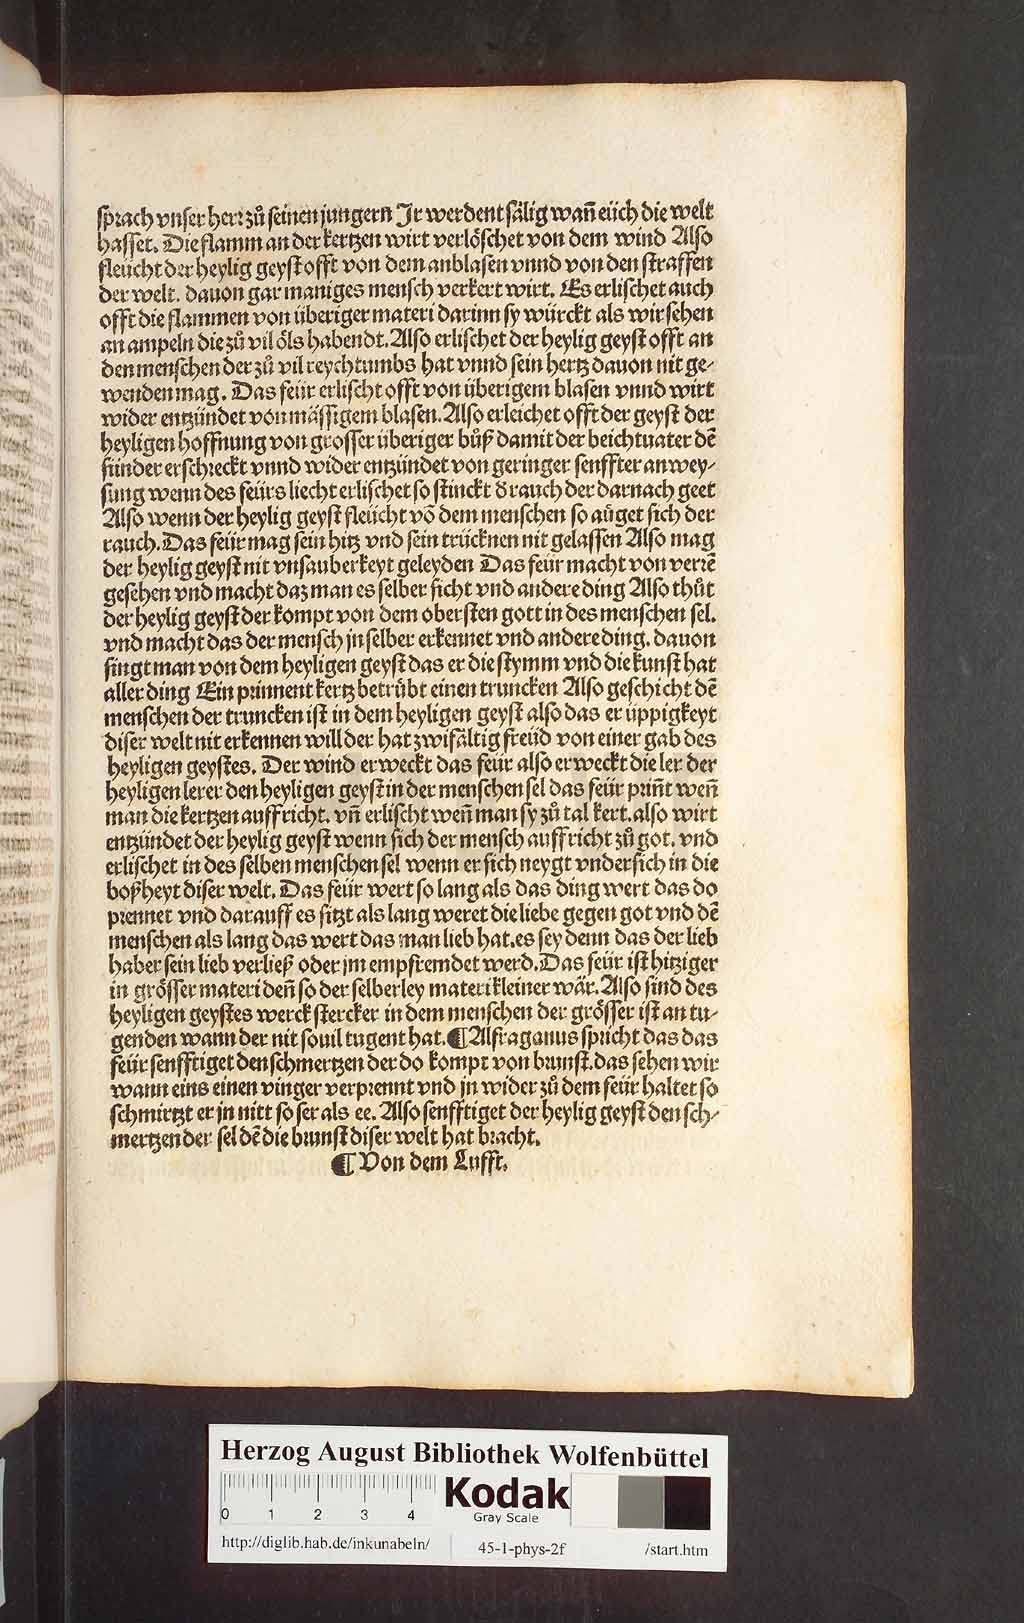 sprach vnser herr zů seinen jungern Jr werdent sälig wañ eüch die welt
hasset. Die flamm an der kertzen wirt verlöschet von dem wind Also
fleücht der heylig geyst offt von dem anblasen vnnd von den straffen
der welt. dauon gar maniges mensch verkert wirt. Es erlischet auch
offt die flammen von überiger materi darinn sy würckt als wir sehen
an ampeln die zů vil öls habendt. Also erlischet der heylig geyst offt an
den menschen der zů vil reychtumbs hat vnnd sein hertz dauon nit ge⸗
wenden mag. Das feür erlischt offt von überigem blasen vnnd wirt
wider entzündet von mässigem blasen. Also erleichet offt der geyst der
heyligen hoffnung von grosser überiger bůß damit der beichtuater dē
sünder erschreckt vnnd wider entzündet von geringer senffter anwey⸗
sung wenn des feürs liecht erlischet so stinckt d̕ rauch der darnach geet
Also wenn der heylig geyst fleücht vō dem menschen so aůget sich der
rauch. Das feür mag sein hitz vnd sein trücknen nit gelassen Also mag
der heylig geyst nit vnsauberkeyt geleyden Das feür macht von verrē
gesehen vnd macht daz man es selber sicht vnd andere ding Also thůt
der heylig geyst der kompt von dem obersten gott in des menschen sel.
vnd macht das der mensch jn selber erkennet vnd andere ding. dauon
singt man von dem heyligen geyst das er die stymm vnd die kunst hat
aller ding Ein prinnent kertz betrübt einen truncken Also geschicht dē
menschen der truncken ist in dem heyligen geyst also das er üppigkeyt
diser welt nit erkennen will der hat zwifältig freüd von einer gab des
heyligen geystes. Der wind erweckt das feür also erweckt die ler der
heyligen lerer den heyligen geyst in der menschen sel das feür print̄ weñ
man die kertzen auffricht. vñ erlischt weñ man sy zů tal kert. also wirt
entzündet der heylig geyst wenn sich der mensch auffricht zů got. vnd
erlischet in des selben menschen sel wenn er sich neygt vndersich in die
boßheyt diser welt. Das feür wert so lang als das ding wert das do
prennet vnd darauff es sitzt als lang weret die liebe gegen got vnd dē
menschen als lang das wert das man lieb hat. es sey denn das der lieb
haber sein lieb verließ oder jm empfremdet werd. Das feür ist hitziger
in grösser materi deñ so der selberley materi kleiner wär. Also sind des
heyligen geystes werck stercker in dem menschen der grösser ist an tu⸗
genden wann der nit souil tugent hat. ¶ Alfraganus spricht das das
feür senfftiget den schmertzen der do kompt von brunst. das sehen wir
wann eins einen vinger verprennt vnd jn wider zů dem feür haltet so
schmirtzt er jn nitt so ser als ee. Also senfftiget der heylig geyst den sch⸗
mertzen der sel dē die brunst diser welt hat bracht.
¶ Von dem Lufft.
Herzog August Bibliothek Wolfenbüttel
0 1 2 3 4
Kodak
Gray Scale
http://diglib.hab.de/inkunabeln/ 45-1-phys-2f /start.htm